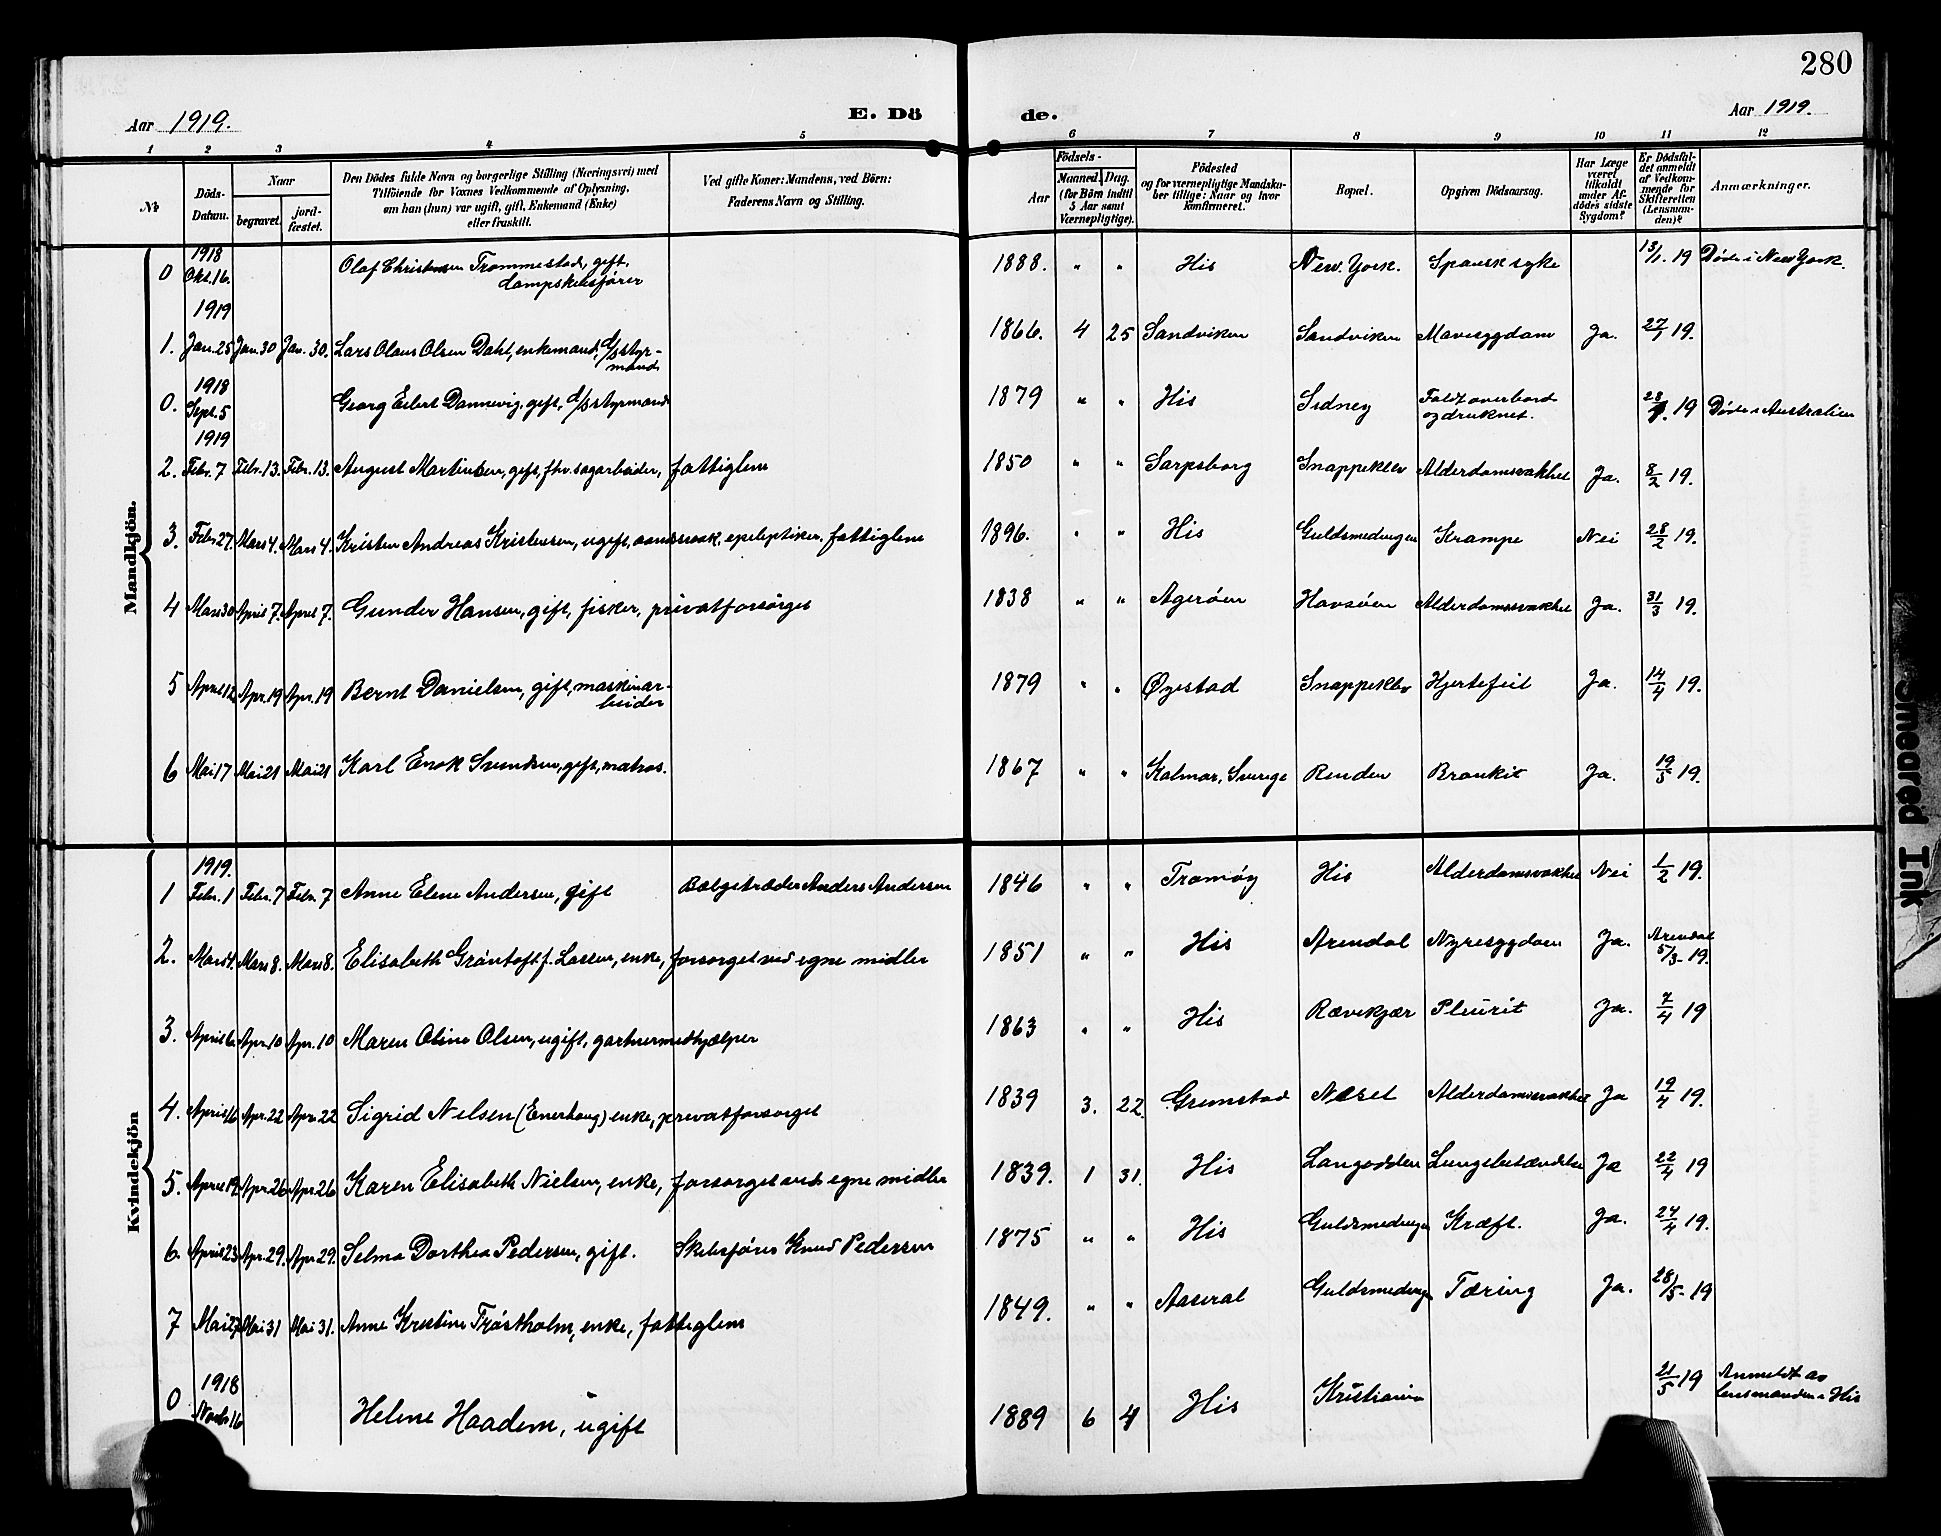 280
Aar 1919.
E. Dö
de.
Aar 1919.
1 2 3 4 5 6 7 8 9 10 11 12
№
Döds-
Datum.
Naar
begravet.
jord-
fæstet.
Den Dödes fulde Navn og borgerlige Stilling (Næringsvei) med
Tilföiende for Voxnes Vedkommende af Oplysning,
om han (hun) var ugift, gift, Enkemand (Enke)
eller fraskilt.
Ved gifte Koner: Mandens, ved Börn:
Faderens Navn og Stilling.
Födsels-
Aar
Maaned. Dag.
(for Börn indtil
5 Aar samt
Værnepligtige).
Födested
og for værnepligtige Mandska-
ber tillige: Naar og hvor
konfirmeret.
Bopæl.
Opgiven Dödsaarsag.
Har Læge
været
tilkaldt
under Af-
dödes sidste
Sygdom?
Er Dödsfal-
det anmeldt
af Vedkom-
mende for
Skifteretten
(Lensman-
den)?
Anmærkninger.
Mandkjön.
0 1918 Okt. 16. Olaf Christensen Trommestad, gift, dampskibsfører 1888. " " His New. York. Spansk syke 13/1. 19 Døde i New York.
1919
1. Jan. 25 Jan. 30 Jan. 30. Lars Olaus Olsen Dahl, enkemand, d/s styr-
mand 1866. 4 25 Sandviken Sandviken Mavesygdom Ja. 27/1 19.
0. 1918 Sept. 5 Georg Eilert Dannevig, gift, d/s styrmand 1879 " " His Sidney Faldt overbord
og druknet. 28/1. 19 Døde i Australien
1919
2. Febr. 7 Febr. 13. Febr. 13. August Martinsen, gift, fhv. sagarbeider, fattiglem 1850 " " Sarpsborg Snappeklev Alderdomssvakhet Ja. 8/2 19.
3. Febr. 27. Mars 4. Mars 4. Kristen Andreas Kristensen, ugift, aandssvak, epileptiker. fattiglem 1896. " " His Guldsmedengen Krampe Nei 28/2 19.
4 Mars 30 April 7. April 7. Gunder Hansen, gift, fisker, privatforsørget 1838 " " Agerøen Havsøen Alderdomssvakhet Ja. 31/3 19.
5 April 12 Apr. 19 Apr. 19 Bernt Danielsen, gift, maskinar-
beider 1879 " " Øyestad Snappeklev Hjertefeil Ja. 14/4 19.
6 Mai 17 Mai 21 Mai 21 Karl Enok Svendsen, gift, matros. 1867 " " Kalmar, Sverige Renden Bronkit Ja. 19/5 19.
Kvindekjön
1919.
1 Febr. 1 Febr. 7 Febr. 7 Anne Elene Andersen, gift Bælgetræder Anders Andersen 1846 " " Tromøy His Alderdomssvakhet Nei 1/2 19.
2. Mars 4. Mars 8. Mars 8. Elisabeth Grøntoft f. Lassen, enke, forsørget ved egne midler 1851 " " His Arendal Nyresygdom Ja. Arendal
5/3- 19.
3. April 6. Apr. 10 Apr. 10 Maren Oline Olsen, ugift, gartnermedhjælper 1863 " " His Rævekjær Pleurit Ja. 7/4 19
4. April 16 Apr. 22 Apr. 22 Sigrid Nilsen (Enerhaug) enke, privatforsørget 1839 3. 22. Grimstad Neset Alderdomssvakhet Ja 19/4 19.
5. April 19 Apr. 26 Apr. 26 Karen Elisabeth Nielsen, enke, forsørget ved egne midler 1839. 1 31. His Langodden Lungebetændelse Ja 22/4 19
6. April 23 Apr. 29. Apr. 29. Selma Dorthea Pedersen, gift. Skibsfører Knud Pedersen 1875 " " His Guldsmedengen Kræft. Ja. 24/4 19.
7 Mai 27 Mai 31 Mai 31. Anne Kristine Trøstholm, enke, fattiglem 1849. " " Aaseral Guldsmedengen Tæring Ja. 28/5- 19
0 1918 Novbr 16 Helene Haadem, ugift 1889 6 4 His Kristiania 21/5 19 Anmeldt av
lensmanden i His
Smeared Ink